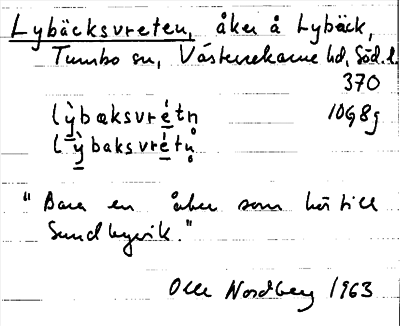 Lybäcksvreten, åker å Lybäck,
Tumbo sn, Västerrekarne hd, Söd. l.
370
lỳbaksvrétn̥ 10G8g
lỳbaksvrétn̥
"Bara en åker som hör till
Sundbyvik."
Olle Nordberg 1963